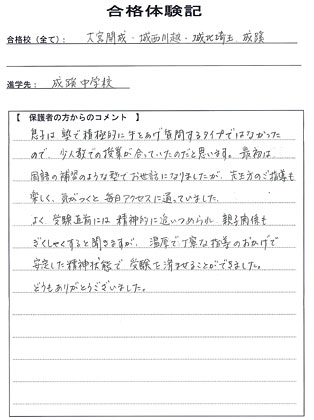 合格体験記
合格校（全て）： 大宮開成・城西川越・城北埼玉 成蹊
進学先： 成蹊中学校
【 保護者の方からのコメント 】
息子は塾で積極的に手をあげ質問するタイプではなかった
ので、少人数での授業が合っていたのだと思います。最初は
国語の補習のような形でお世話になりましたが、先生方のご指導も
楽しく、気がつくと毎日アクセスに通っていました。
よく、受験直前には精神的に追いつめられ、親子関係も
ぎくしゃくすると聞きますが、温厚で丁寧な指導のおかげで
安定した精神状態で受験を済ませることができました。
どうもありがとうございました。